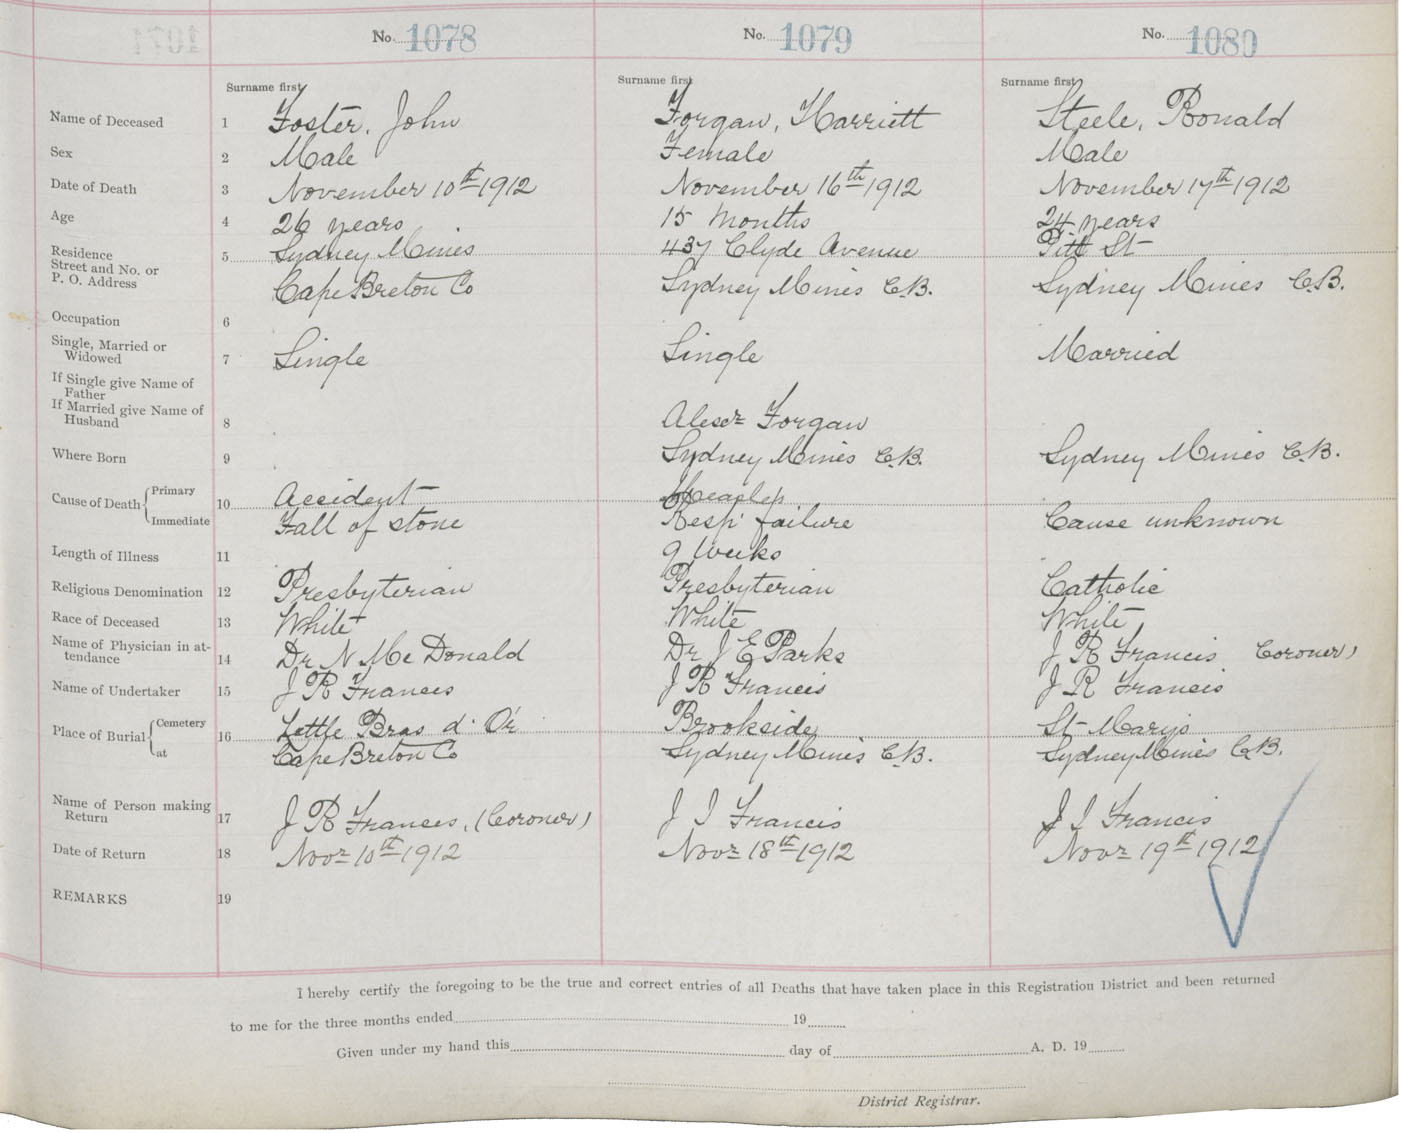 No. 1078 No. 1079 No. 1080
Surname first Surname first Surname first
Name of Deceased 1 Foster, John Forgan, Harriett Steele, Ronald
Sex 2 Male Female Male
Date of Death 3 November 10th 1912 November 16th 1912 November 17th 1912
Age 4 26 years 15 Months 24 years
Residence
Street and No. or 5 Sydney Mines 437 Clyde Avenue Pitt St
P. O. Address Cape Breton Co Sydney Mines C.B. Sydney Mines C.B.
Occupation 6
Single, Married or
Widowed 7 Single Single Married
If Single give Name of
Father
If Married give Name of
Husband 8 Alexr Forgan
Where Born 9 Sydney Mines C.B. Sydney Mines C.B.
Cause of Death Primary 10 Accident Measles
Immediate Fall of stone Resp failure Cause unknown
Length of Illness 11 9 Weeks
Religious Denomination 12 Presbyterian Presbyterian Catholic
Race of Deceased 13 White White White
Name of Physician in at-
tendance 14 Dr N McDonald Dr J E Parks J R Francis Coroner)
Name of Undertaker 15 J R Francis J R Francis J R Francis
Place of Burial Cemetery 16 Little Bras d'Or Brookside St Marys
at Cape Breton Co Sydney Mines C.B. Sydney Mines C.B.
Name of Person making
Return 17 J R Francis, (Coroner) J J Francis J J Francis
Date of Return 18 Novr 10th 1912 Novr 18th 1912 Novr 19th 1912
REMARKS 19
I hereby certify the foregoing to be the true and correct entries of all Deaths that have taken place in this Registration District and been returned
to me for the three months ended 19
Given under my hand this day of A. D. 19
District Registrar.